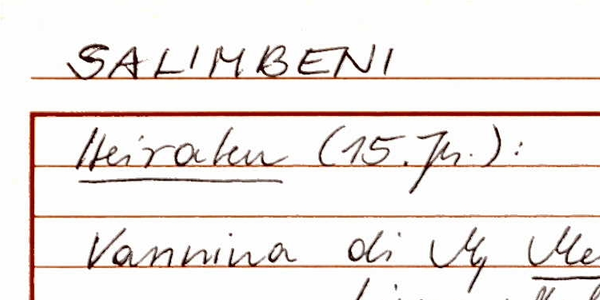 SALIMBENI
Heiraten (15. Jh.):
Vannina di